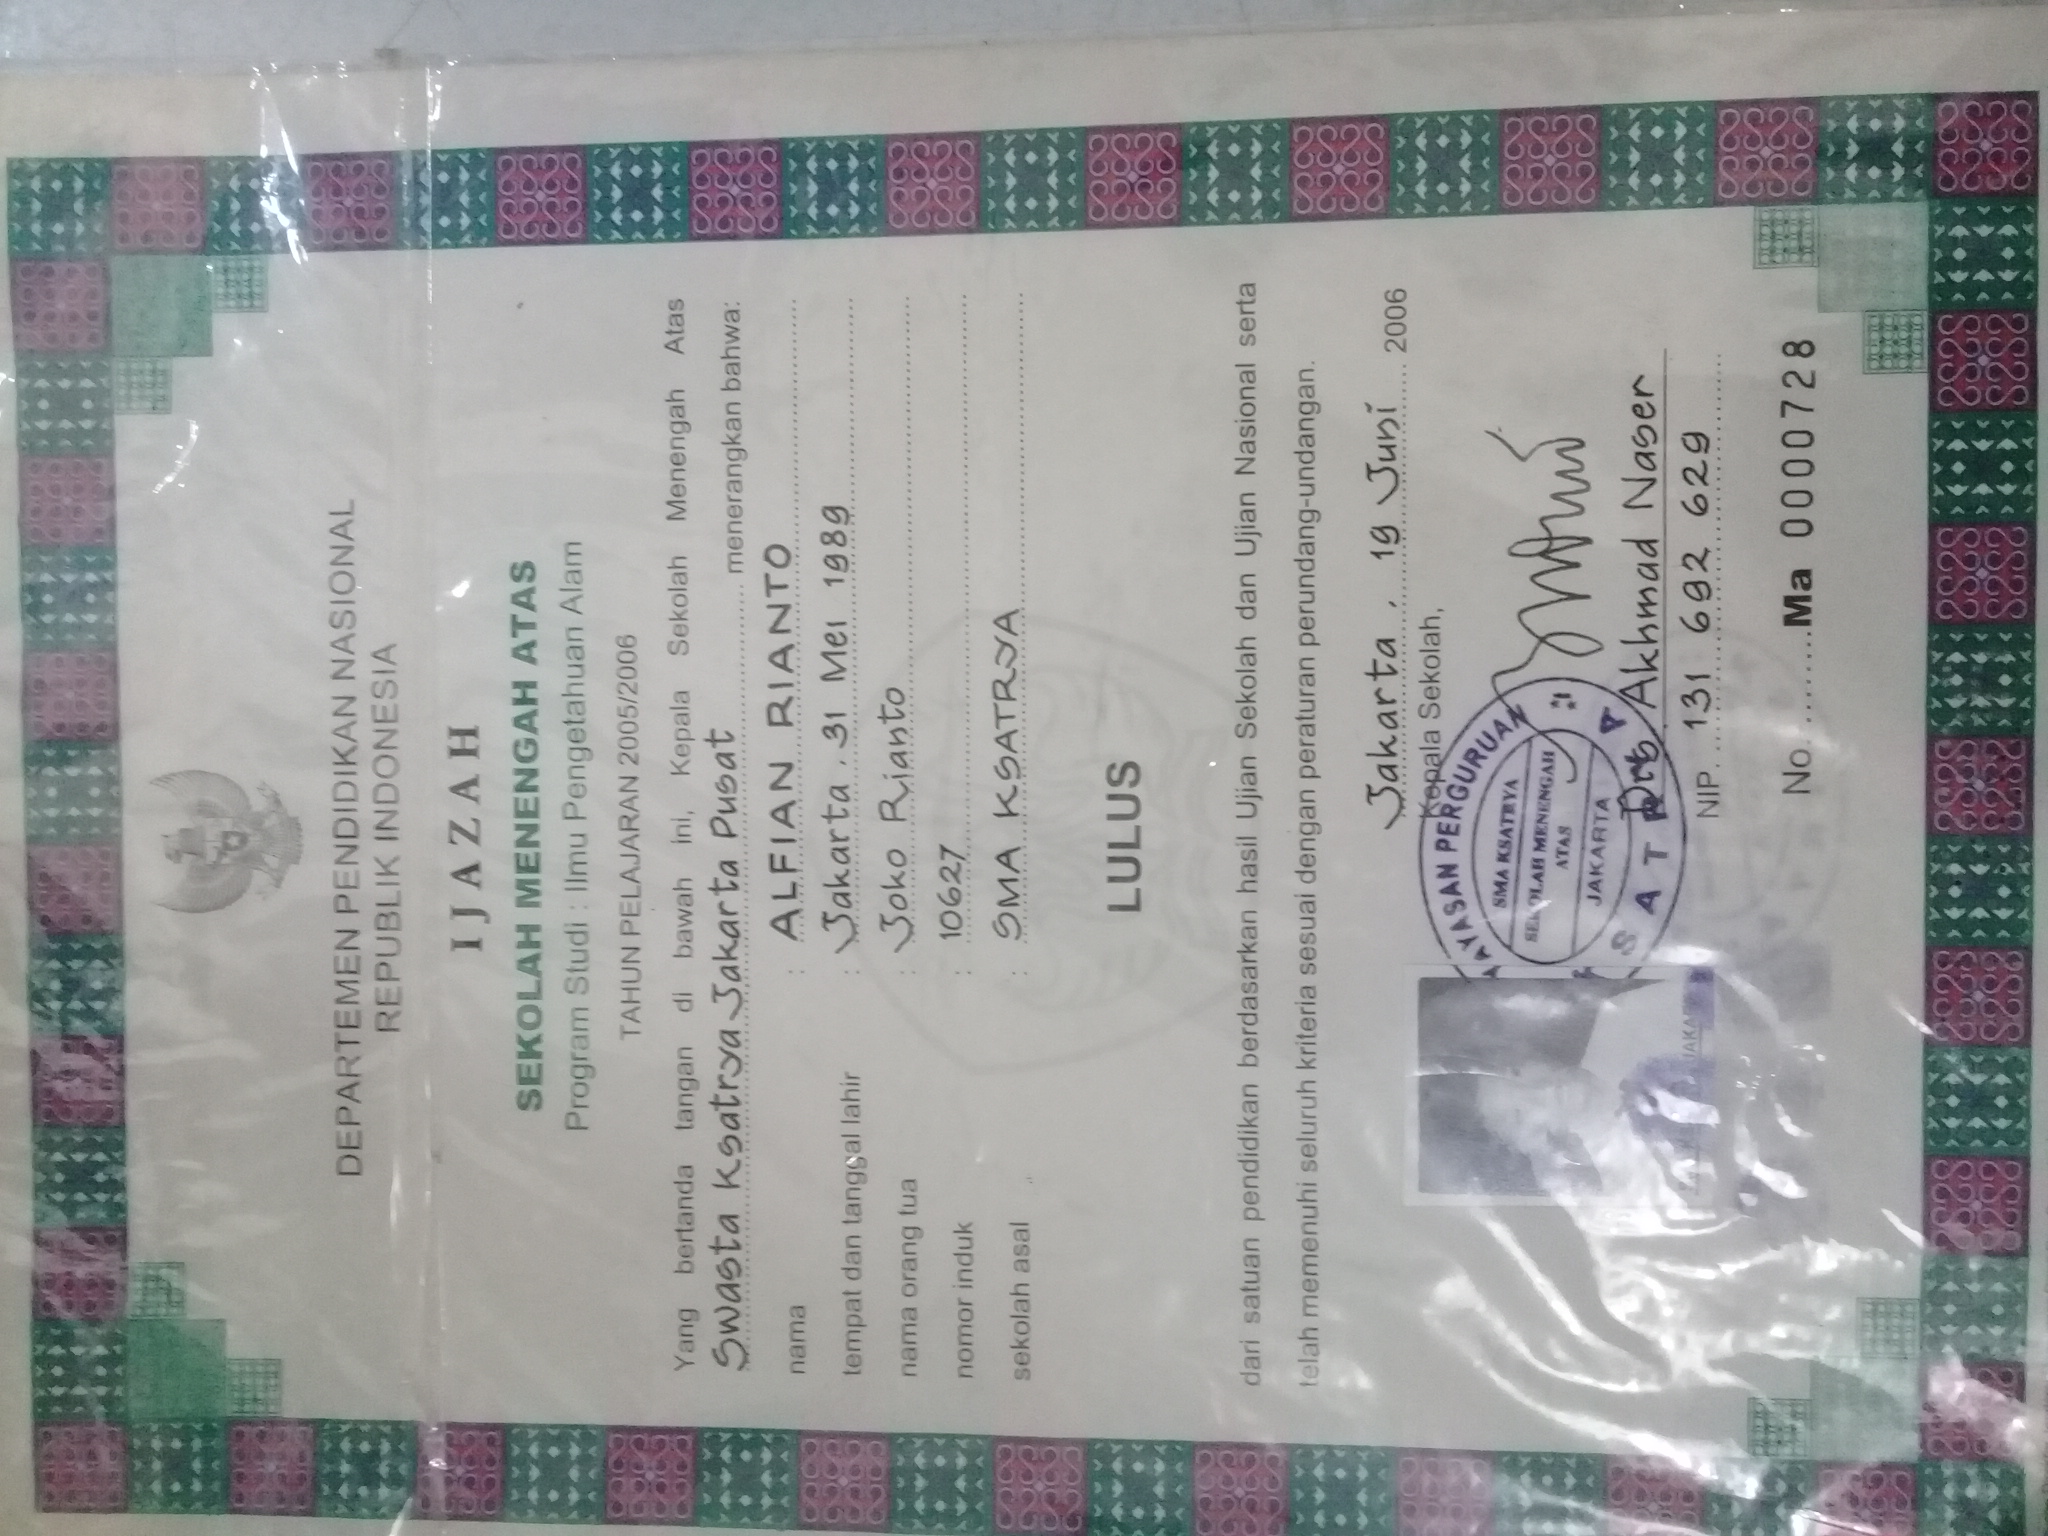 DEPARTEMEN PENDIDIKAN NASIONAL
REPUBLIK INDONESIA
IJAZAH
SEKOLAH MENENGAH ATAS
Program Studi : Ilmu Pengetahuan Alam
TAHUN PELAJARAN 2005/2006
Yang bertanda tangan di bawah ini, Kepala Sekolah Menengah Atas
Swasta Ksatrya Jakarta Pusat menerangkan bahwa:
nama : ALFIAN RIANTO
tempat dan tanggal lahir : Jakarta, 31 Mei 1989
nama orang tua : Joko Rianto
nomor induk : 10627
sekolah asal : SMA KSATRYA
LULUS
dari satuan pendidikan berdasarkan hasil Ujian Sekolah dan Ujian Nasional serta
telah memenuhi seluruh kriteria sesuai dengan peraturan perundang-undangan.
Jakarta, 19 Juni 2006
Kepala Sekolah,
YAYASAN PERGURUAN
SMA KSATRYA
SEKOLAH MENENGAH
ATAS
JAKARTA
Drs. Akhmad Naser
NIP. 131 692 629
No. ........Ma 0000728